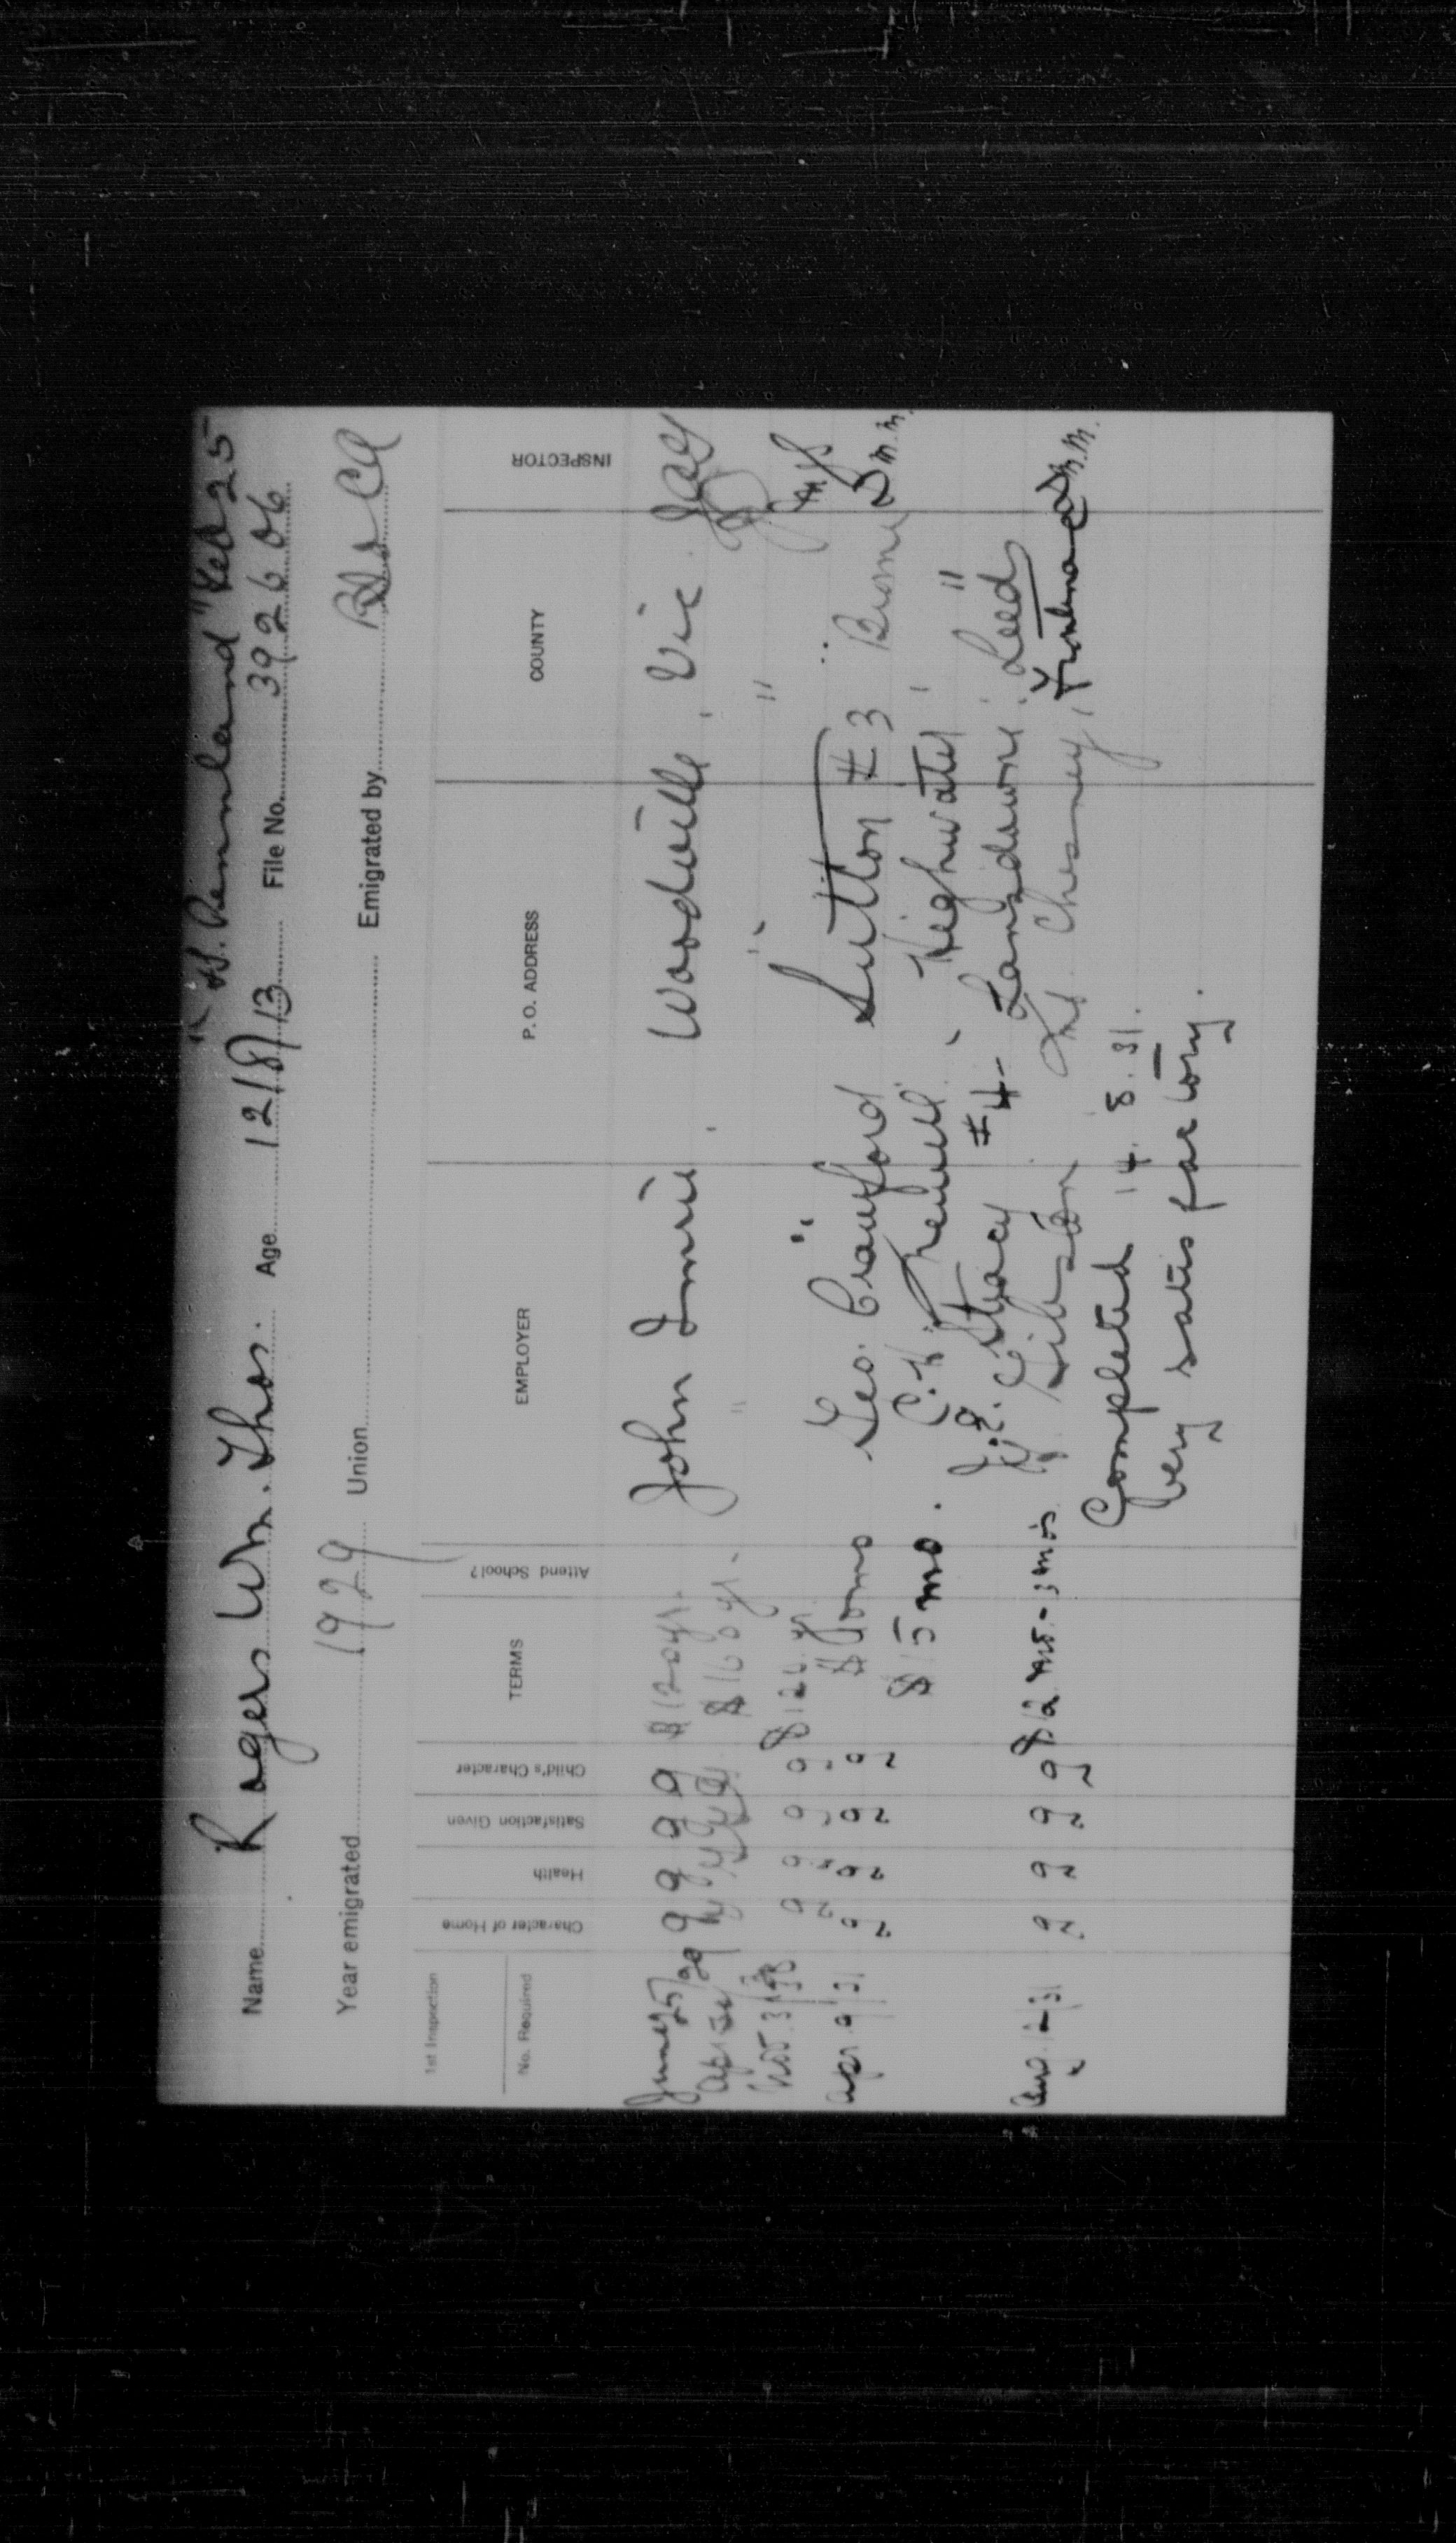 "S.S. Pennland" Feb 25
Name Rogers Wm. Thos. Age 12/8/13 File No. 392606
Year emigrated 1929 Union Emigrated by
1st Inspection
No. Required Character of Home Health Satisfaction Given Child's Character TERMS Attend School? EMPLOYER P. O. ADDRESS COUNTY INSPECTOR
June 25/29 g g g g $120 yr. John Imrie Woodville, Vic.
Apr $160 yr. " " "
Nov. 31 g g g g yr.
Apr. 9/31 g g g g $ Home Geo. Crawford Sutton #3 Brome S.M.M.
$15 mo. C. H. Highwater "
J. E. Stacy #4 Lansdowne, Leed
Aug. 12/31 g g g g $12 mo. - 3 mos. Gibson Int. Chesney, Frontenac S.M.M.
Completed 14. 8. 31.
Very satisfactory.